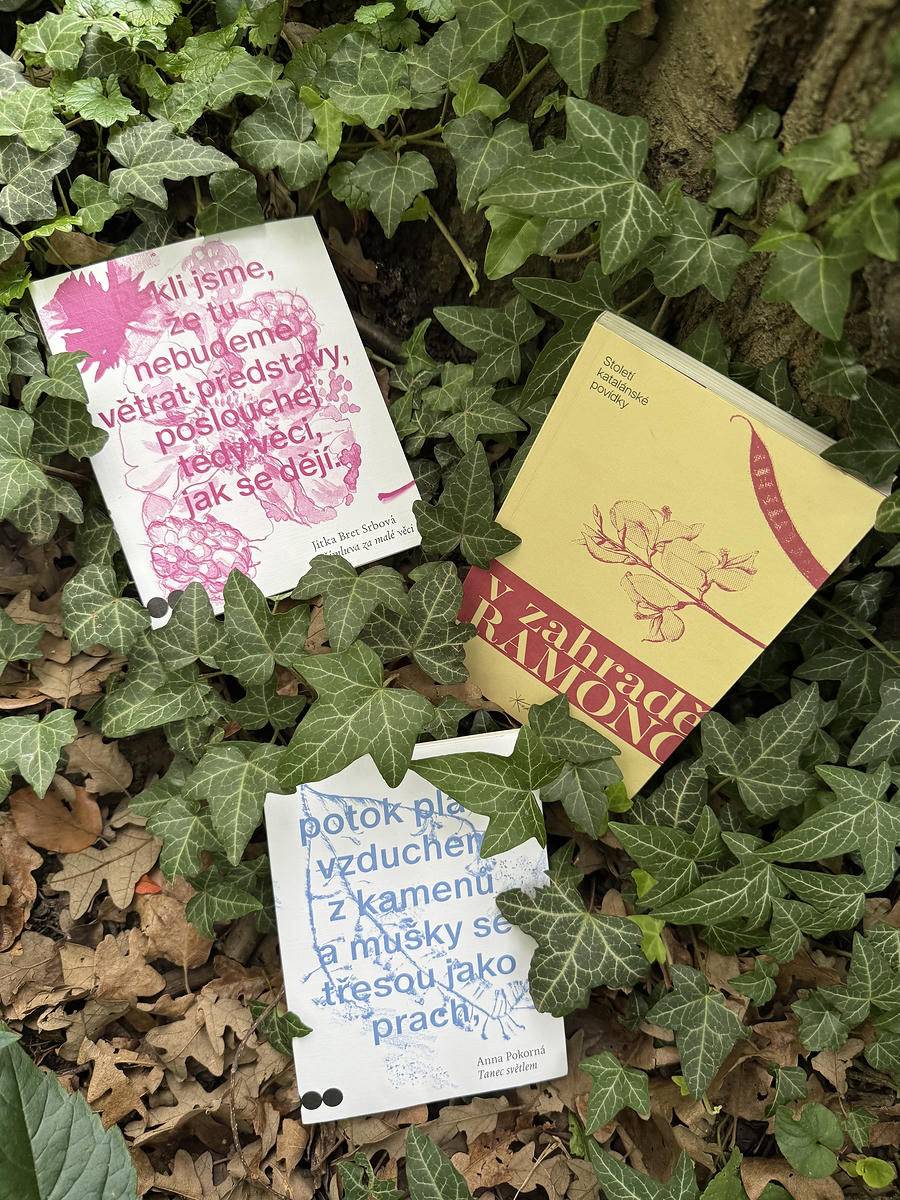 kli jsme,
že tu
nebudeme
větrat představy,
poslouchej
tedy věci,
jak se dějí.
Jitka Bret Srbová
Smlouva za malé věci
Století
katalánské
povídky
v zahradě
RAMONO
potok pla
vzduchem
z kamenů
a mušky se
třesou jako
prach,
Anna Pokorná
Tanec světlem